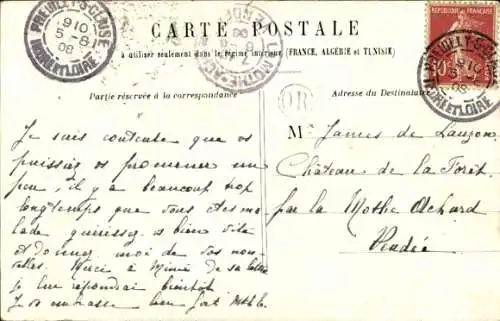 CARTE POSTALE
à utiliser seulement dans le régime intérieur (FRANCE, ALGÉRIE et TUNISIE)
PREUILLY-S-CLAISE
9 10
5 - 8
08
INDRE ET LOIRE
Partie réservée à la correspondance
Adresse du Destinataire
OR
Je suis contente que vs
puissiez vs promener un
peu, il y a beaucoup trop
longtemps que vous êtes ma
lade guérissez vs bien vite
et donnez moi de vos nou
velles. Merci à Mimi de sa lettre
je lui répondrai bientôt
Je vs embrasse bien fort
M. James de Lauzon
Château de la Forêt
par la Mothe Achard
Vendée
RÉPUBLIQUE FRANÇAISE
10
PREUILLY-S-CLAISE
INDRE ET LOIRE